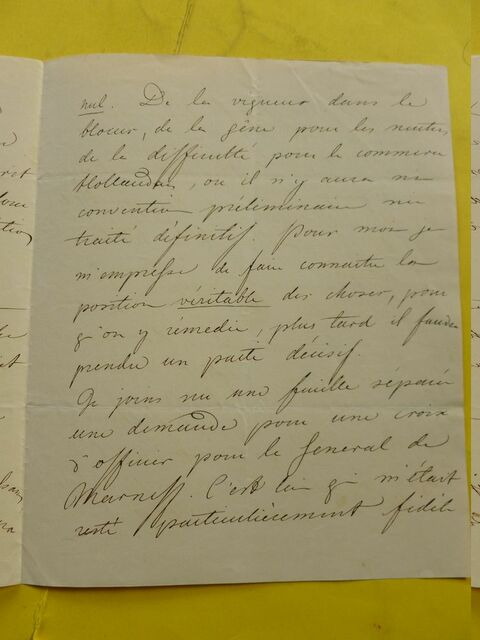 nul. De la vigueur dans le
blocus, de la gêne pour les neutres,
de la difficulté pour le commerce
Hollandais, ou il n'y aura ni
convention préliminaire ni
traité définitif. Pour moi je
m'empresse de faire connaitre la
position véritable des choses, pour
qu'on y rémedie, plus tard il faudra
prendre un parti décisif.
Je joins sur une feuille séparée
une demande pour une croix
d'officier pour le General de
C'est lui qi m'était
resté particulièrement fidèle